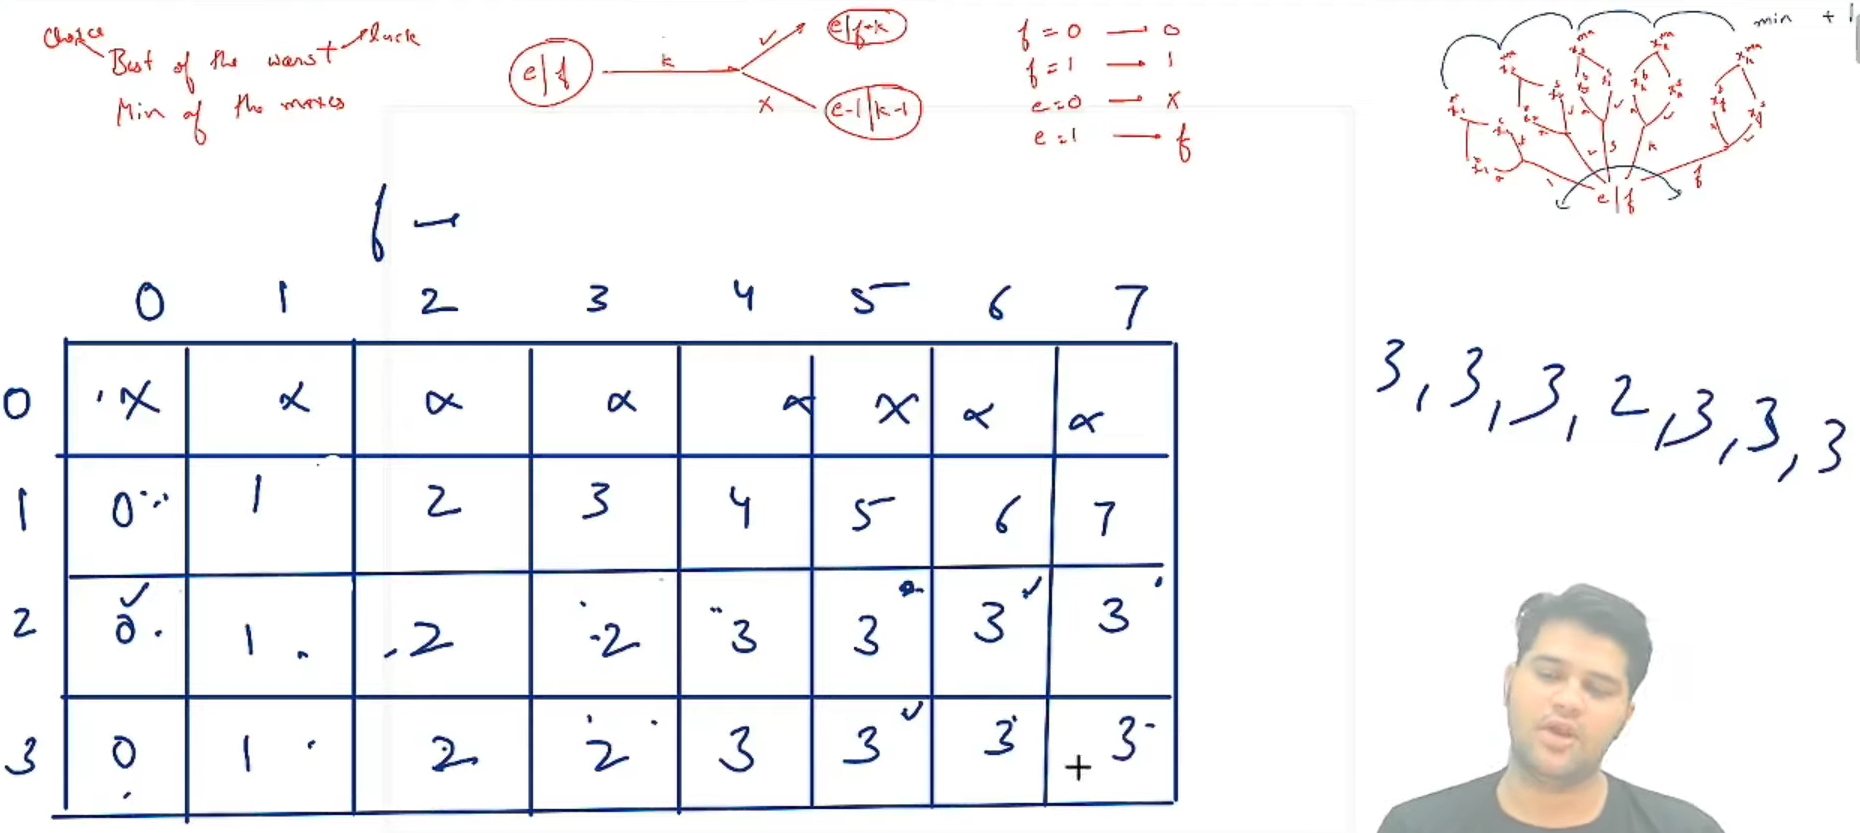 Choice
luck
Best of the worst
Min of the maxes
e|f
k
✓
e|f-k
x
e-1|k-1
f=0 → 0
f=1 → 1
e=0 → x
e=1 → f
min + 1
e|f
f →
0 1 2 3 4 5 6 7
0 X α α α α X α α
1 0 1 2 3 4 5 6 7
2 0 1 2 2 3 3 3 3
3 0 1 2 2 3 3 3 3
3, 3, 3, 2, 3, 3, 3